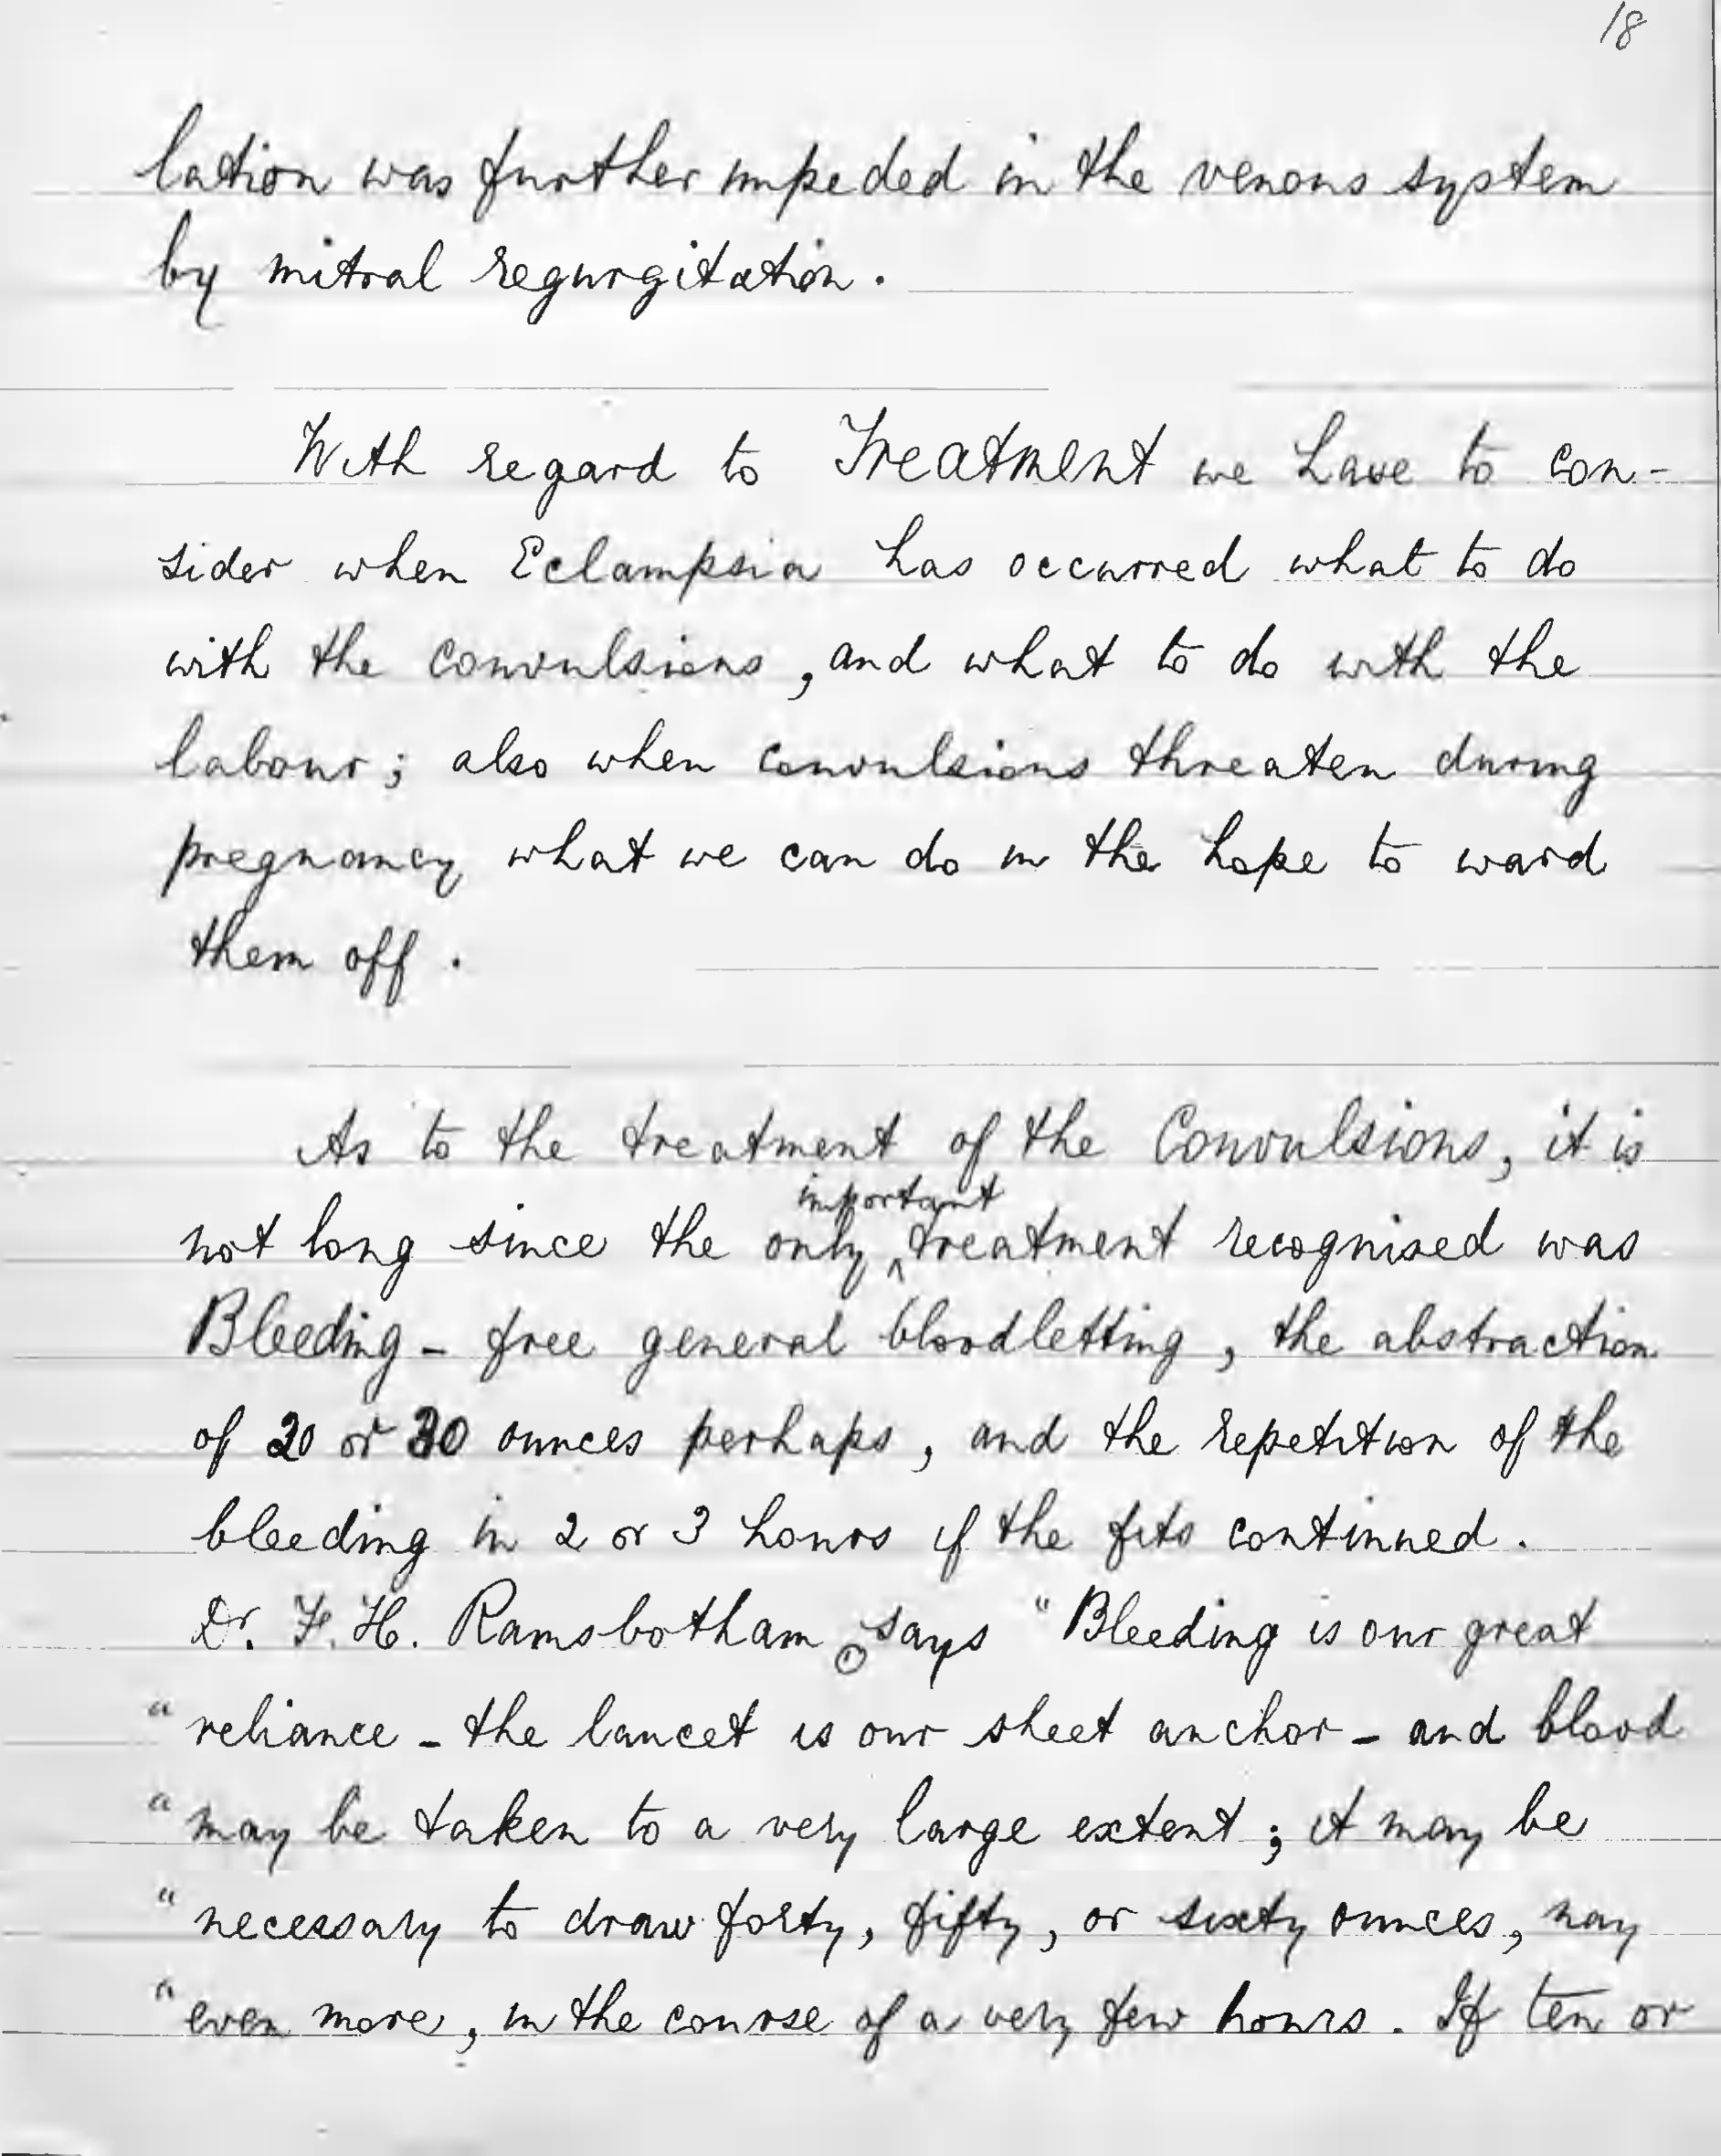 18
lation was further impeded in the venous system
by mitral regurgitation.
With regard to Treatment we have to con-
sider when Eclampsia has occurred what to do
with the convulsions, and what to do with the
labour; also when convulsions threaten during
pregnancy what we can do in the hope to ward
them off.
As to the treatment of the Convulsions, it is
important
not long since the only ‸ treatment recognised was
Bleeding - free general bloodletting, the abstraction
of 20 or 30 ounces perhaps, and the repetition of the
bleeding in 2 or 3 hours if the fits continued.
Dr. F. H. Ramsbotham says "Bleeding is our great
"reliance - the lancet is our sheet anchor - and blood
"may be taken to a very large extent; it may be
"necessary to draw forty, fifty, or sixty ounces, nay
"even more, in the course of a very few hours. If ten or